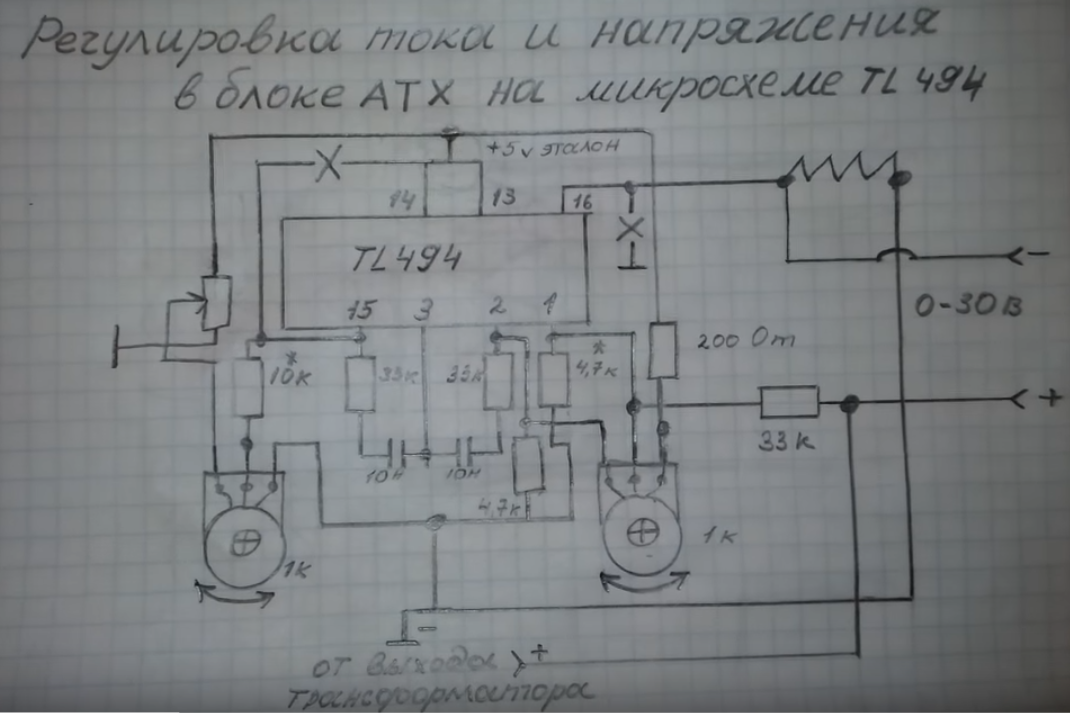 Регулировка тока и напряжения
в блоке АТХ на микросхеме TL 494
+5v эталон
14
13
16
TL494
15 3 2 1
0-30в
200 Om
*
10к
33к
33к
*
4,7к
+
33к
10н
10н
4,7к
1к
1к
от выхода +
трансформатора